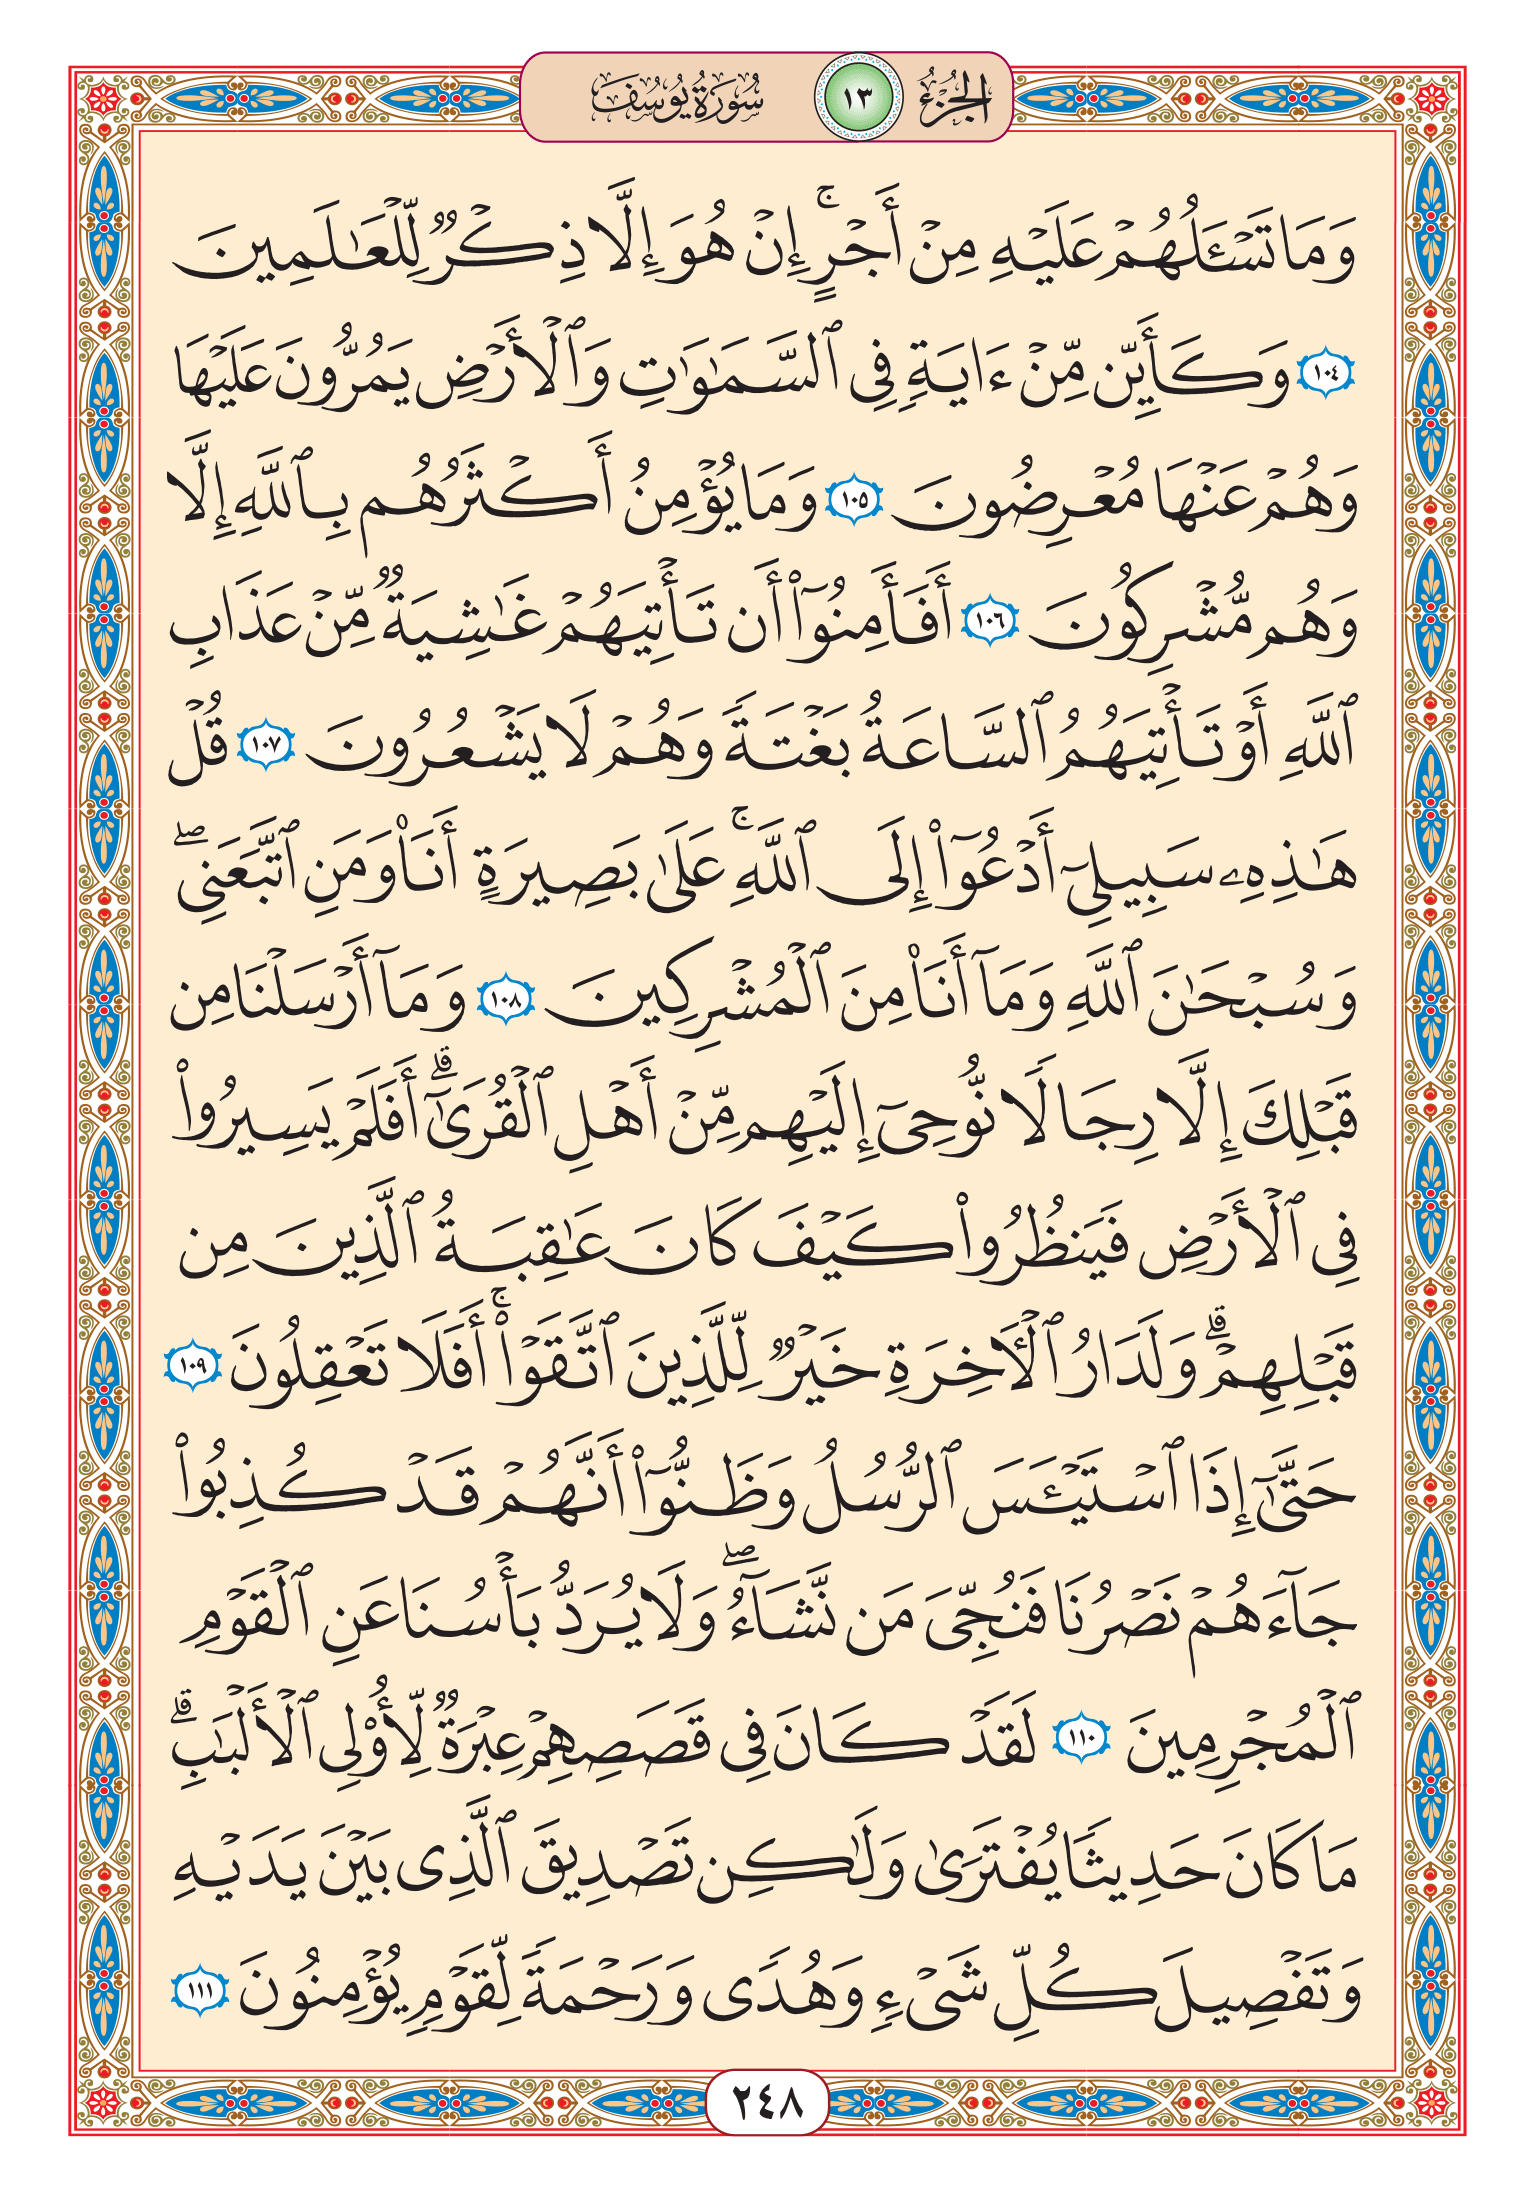 الجزء ١٣ سورة يوسف
وَمَا تَسْـَٔلُهُمْ عَلَيْهِ مِنْ أَجْرٍ ۚ إِنْ هُوَ إِلَّا ذِكْرٌ لِّلْعَـٰلَمِينَ
١٠٤ وَكَأَيِّن مِّنْ ءَايَةٍ فِى ٱلسَّمَـٰوَٰتِ وَٱلْأَرْضِ يَمُرُّونَ عَلَيْهَا
وَهُمْ عَنْهَا مُعْرِضُونَ ١٠٥ وَمَا يُؤْمِنُ أَكْثَرُهُم بِٱللَّهِ إِلَّا
وَهُم مُّشْرِكُونَ ١٠٦ أَفَأَمِنُوٓا۟ أَن تَأْتِيَهُمْ غَـٰشِيَةٌ مِّنْ عَذَابِ
ٱللَّهِ أَوْ تَأْتِيَهُمُ ٱلسَّاعَةُ بَغْتَةً وَهُمْ لَا يَشْعُرُونَ ١٠٧ قُلْ
هَـٰذِهِۦ سَبِيلِىٓ أَدْعُوٓا۟ إِلَى ٱللَّهِ ۚ عَلَىٰ بَصِيرَةٍ أَنَا۠ وَمَنِ ٱتَّبَعَنِى ۖ
وَسُبْحَـٰنَ ٱللَّهِ وَمَآ أَنَا۠ مِنَ ٱلْمُشْرِكِينَ ١٠٨ وَمَآ أَرْسَلْنَا مِن
قَبْلِكَ إِلَّا رِجَالًا نُّوحِىٓ إِلَيْهِم مِّنْ أَهْلِ ٱلْقُرَىٰٓ ۗ أَفَلَمْ يَسِيرُوا۟
فِى ٱلْأَرْضِ فَيَنظُرُوا۟ كَيْفَ كَانَ عَـٰقِبَةُ ٱلَّذِينَ مِن
قَبْلِهِمْ ۗ وَلَدَارُ ٱلْـَٔاخِرَةِ خَيْرٌ لِّلَّذِينَ ٱتَّقَوْا۟ ۚ أَفَلَا تَعْقِلُونَ ١٠٩
حَتَّىٰٓ إِذَا ٱسْتَيْـَٔسَ ٱلرُّسُلُ وَظَنُّوٓا۟ أَنَّهُمْ قَدْ كُذِبُوا۟
جَآءَهُمْ نَصْرُنَا فَنُجِّىَ مَن نَّشَآءُ ۖ وَلَا يُرَدُّ بَأْسُنَا عَنِ ٱلْقَوْمِ
ٱلْمُجْرِمِينَ ١١٠ لَقَدْ كَانَ فِى قَصَصِهِمْ عِبْرَةٌ لِّأُو۟لِى ٱلْأَلْبَـٰبِ ۗ
مَا كَانَ حَدِيثًا يُفْتَرَىٰ وَلَـٰكِن تَصْدِيقَ ٱلَّذِى بَيْنَ يَدَيْهِ
وَتَفْصِيلَ كُلِّ شَىْءٍ وَهُدًى وَرَحْمَةً لِّقَوْمٍ يُؤْمِنُونَ ١١١
٢٤٨